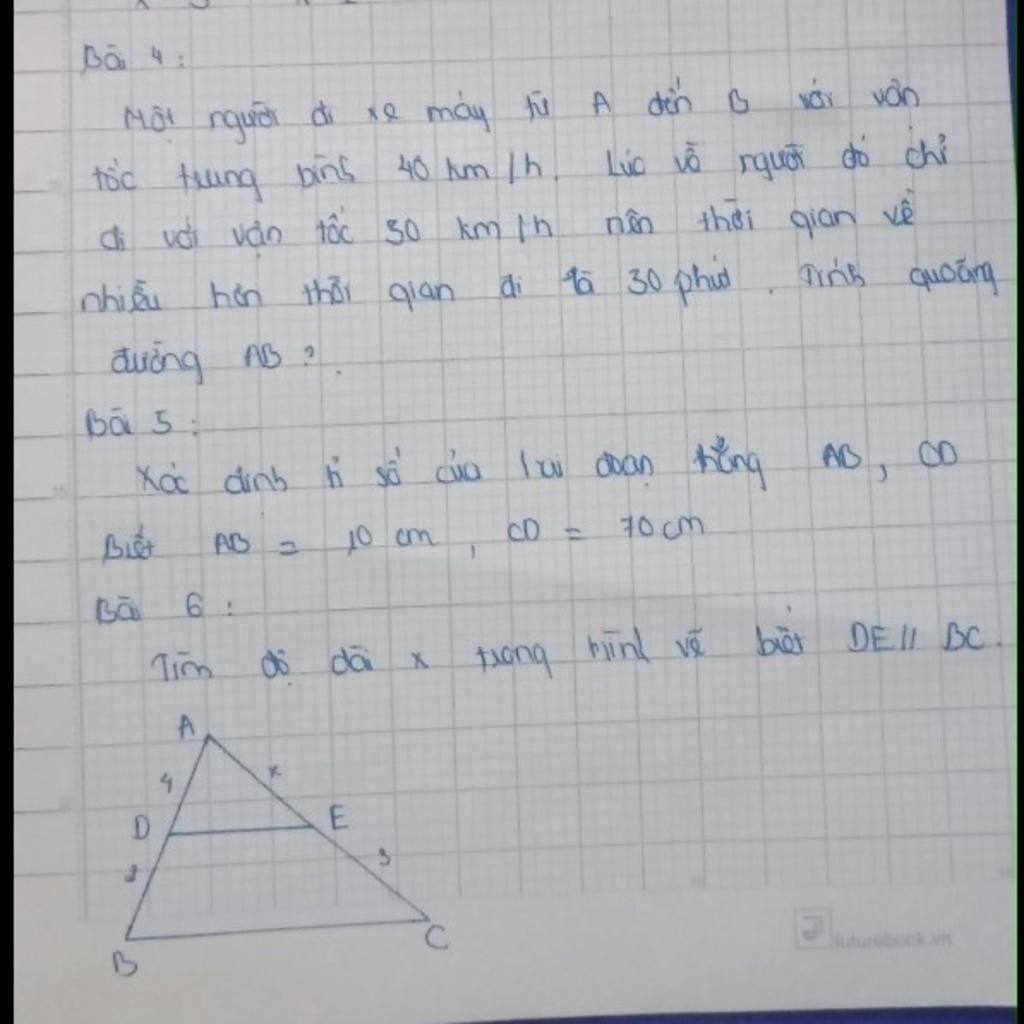 Bài 4:
Một người đi xe máy từ A đến B với vận
tốc trung bình 40 km/h. Lúc về người đó chỉ
đi với vận tốc 30 km/h nên thời gian về
nhiều hơn thời gian đi là 30 phút. Tính quoãng
đường AB?
Bài 5:
Xác định tỉ số của hai đoạn thẳng AB, CD
Biết AB = 10 cm, CD = 70 cm
Bài 6:
Tìm độ dài x trong hình vẽ biết DE // BC.
A
4 x
D E
3
B C
futurebook.vn